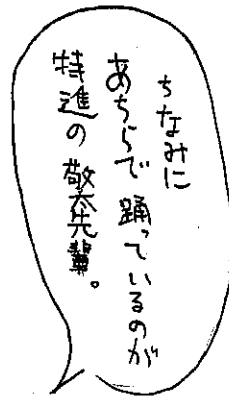 ちなみに
あちらで踊っているのが
特進の敬泰先輩。